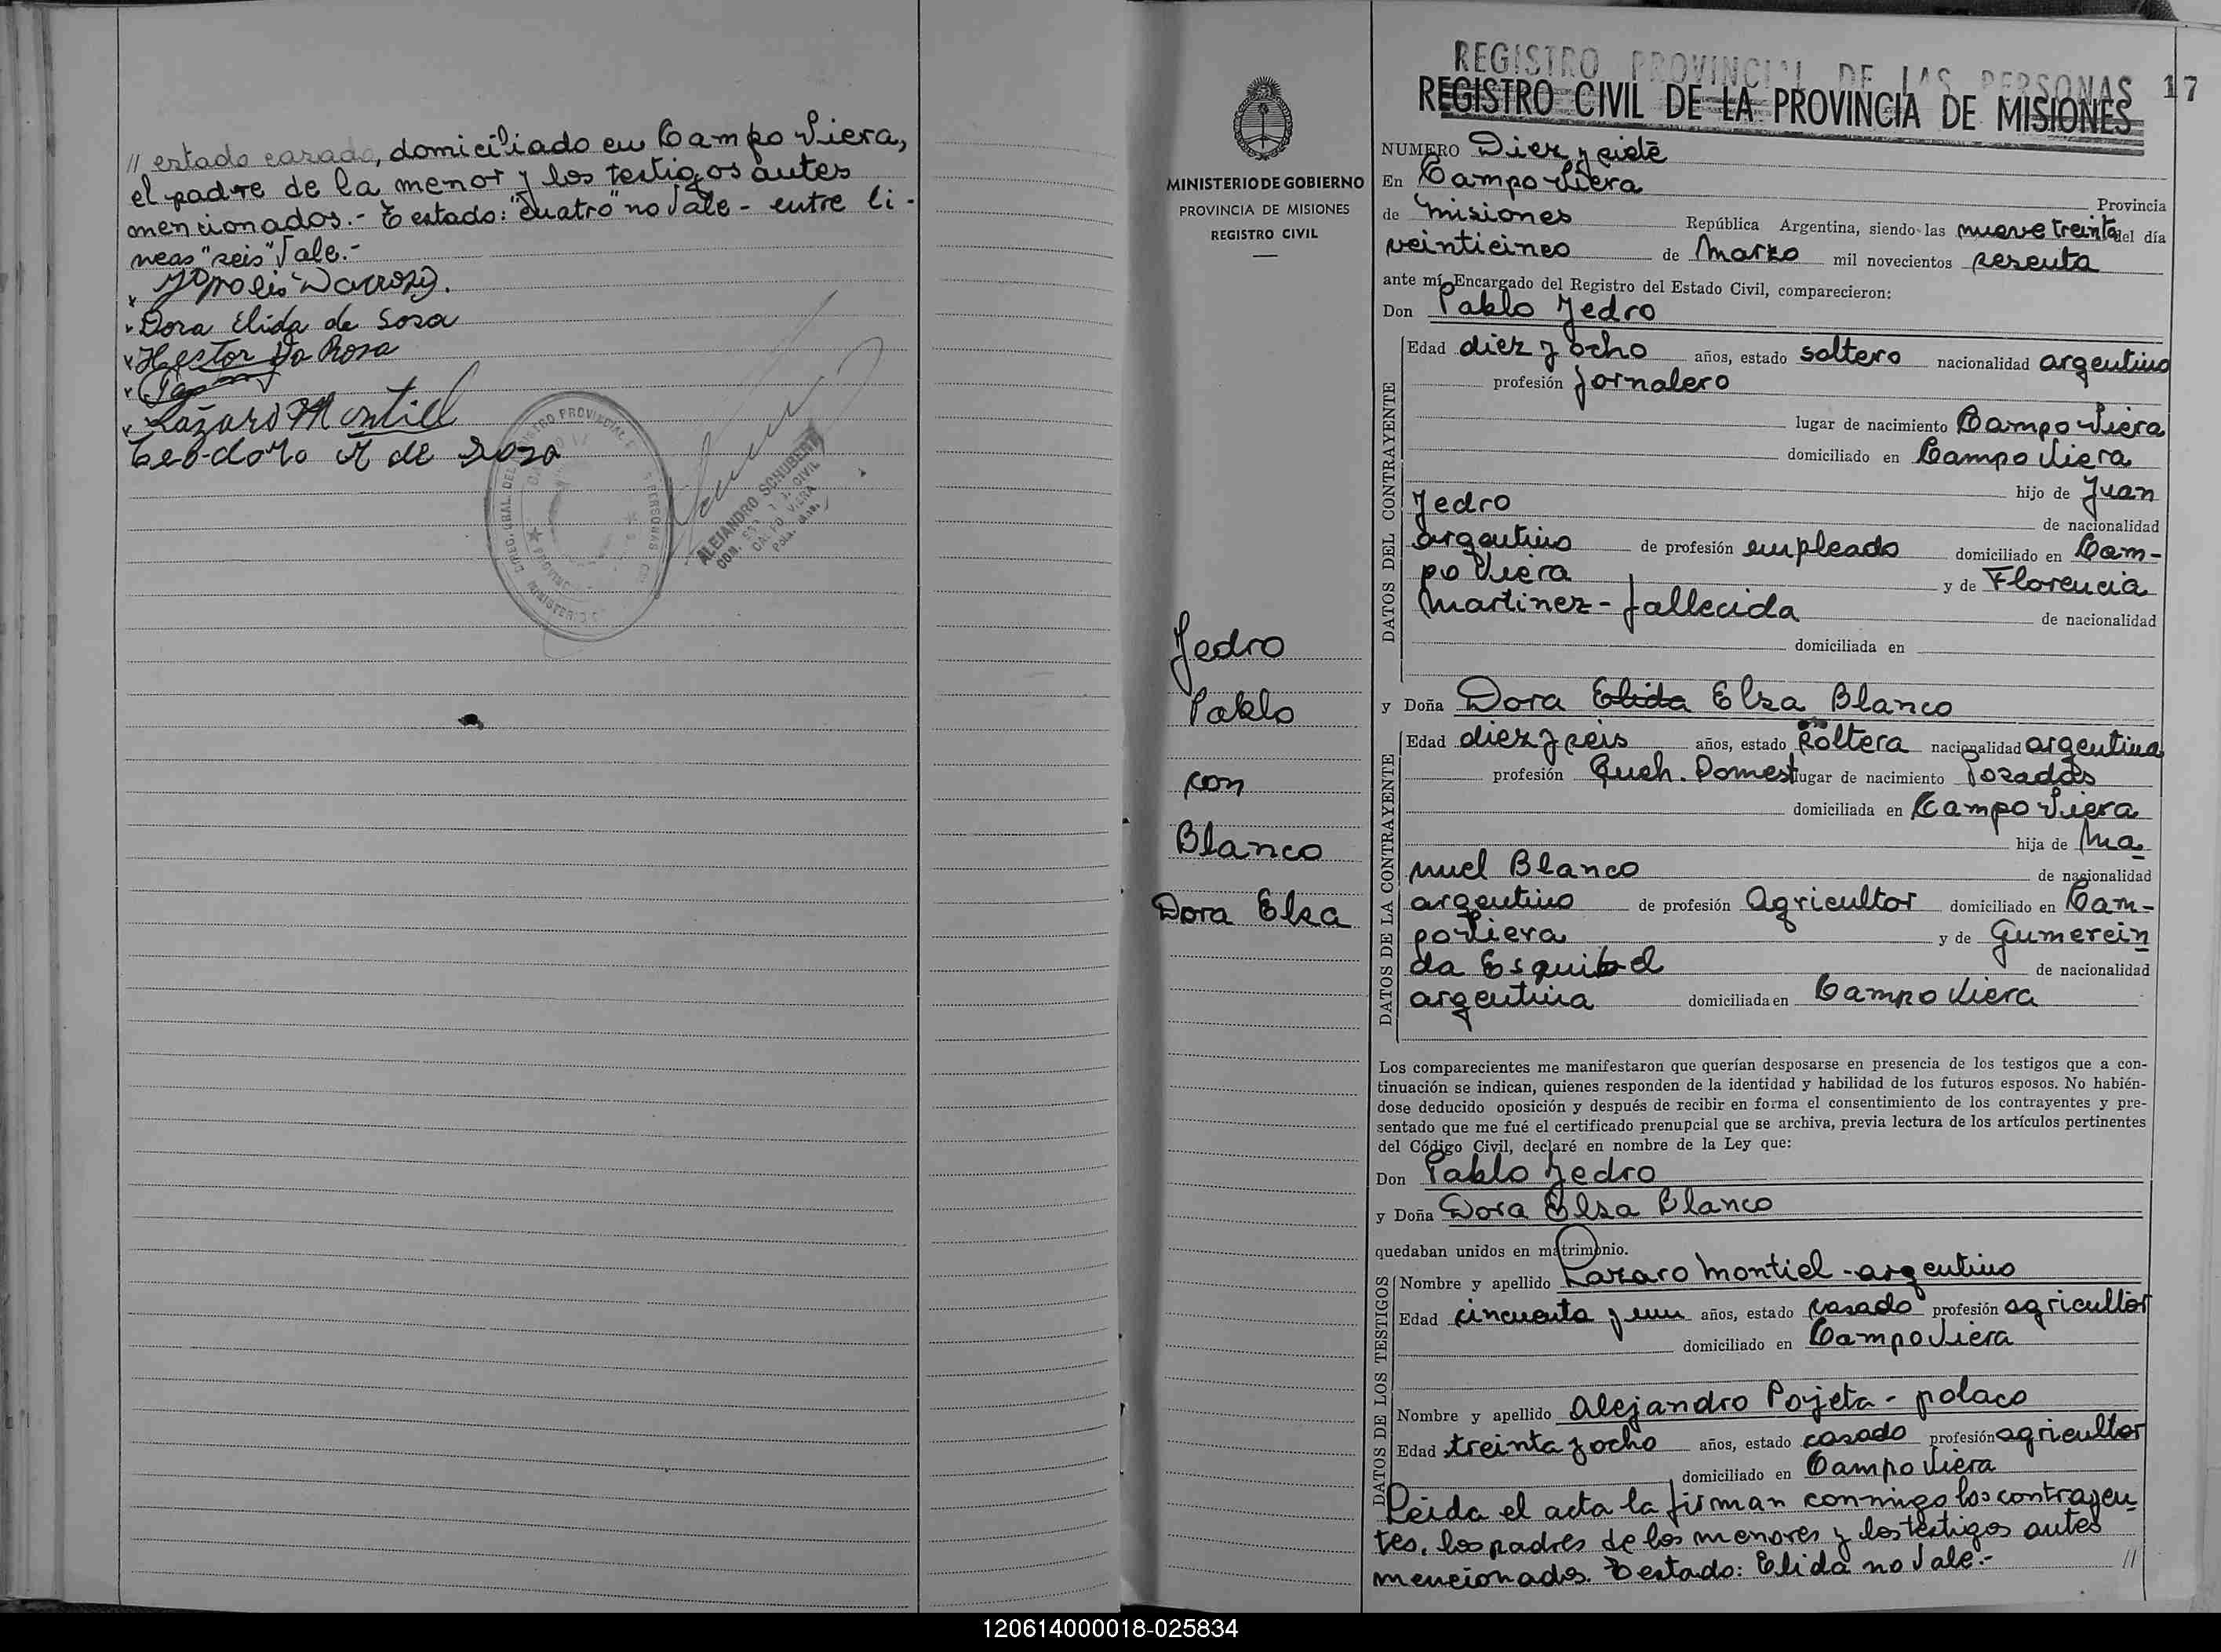 // estado casado, domiciliado en Campo Viera,
el padre de la menor y los testigos antes
mencionados.- Testado: "cuatro" no Vale - entre li-
neas "seis" Vale.-
Dora Elida de Sosa
Hector Da Rosa
Lazaro Montiel
Teodoro R de Sosa
ALEJANDRO SCHUBERT
17
REGISTRO PROVINCIAL DE LAS PERSONAS
REGISTRO CIVIL DE LA PROVINCIA DE MISIONES
MINISTERIO DE GOBIERNO
PROVINCIA DE MISIONES
REGISTRO CIVIL
Jedro
Pablo
con
Blanco
Dora Elsa
NUMERO Diez y siete
En Campo Viera Provincia
de Misiones República Argentina, siendo las nueve treinta del día
veinticinco de Marzo mil novecientos sesenta
ante mí, Encargado del Registro del Estado Civil, comparecieron:
Don Pablo Jedro
DATOS DEL CONTRAYENTE
Edad diez y ocho años, estado soltero nacionalidad argentino
profesión Jornalero
lugar de nacimiento Campo Viera
domiciliado en Campo Viera
hijo de Juan
Jedro de nacionalidad
argentino de profesión empleado domiciliado en Cam-
po Viera y de Florencia
Martinez - fallecida de nacionalidad
domiciliada en
y Doña Dora Elida Elsa Blanco
DATOS DE LA CONTRAYENTE
Edad diez y seis años, estado soltera nacionalidad argentina
profesión Queh. Domest lugar de nacimiento Posadas
domiciliada en Campo Viera
hija de Ma
nuel Blanco de nacionalidad
argentino de profesión Agricultor domiciliado en Cam-
po Viera y de Gumercin
da Esquibel de nacionalidad
argentina domiciliada en Campo Viera
Los comparecientes me manifestaron que querían desposarse en presencia de los testigos que a con-
tinuación se indican, quienes responden de la identidad y habilidad de los futuros esposos. No habién-
dose deducido oposición y después de recibir en forma el consentimiento de los contrayentes y pre-
sentado que me fué el certificado prenupcial que se archiva, previa lectura de los artículos pertinentes
del Código Civil, declaré en nombre de la Ley que:
Don Pablo Jedro
y Doña Dora Elsa Blanco
quedaban unidos en matrimonio.
DATOS DE LOS TESTIGOS
Nombre y apellido Lazaro Montiel - argentino
Edad cincuenta y un años, estado casado profesión agricultor
domiciliado en Campo Viera
Nombre y apellido Alejandro Pojeta - polaco
Edad treinta y ocho años, estado casado profesión agricultor
domiciliado en Campo Viera
Leida el acta la firman conmigo los contrayen
tes, los padres de los menores y los testigos antes
mencionados. Testado: Elida no Vale.- //
120614000018-025834